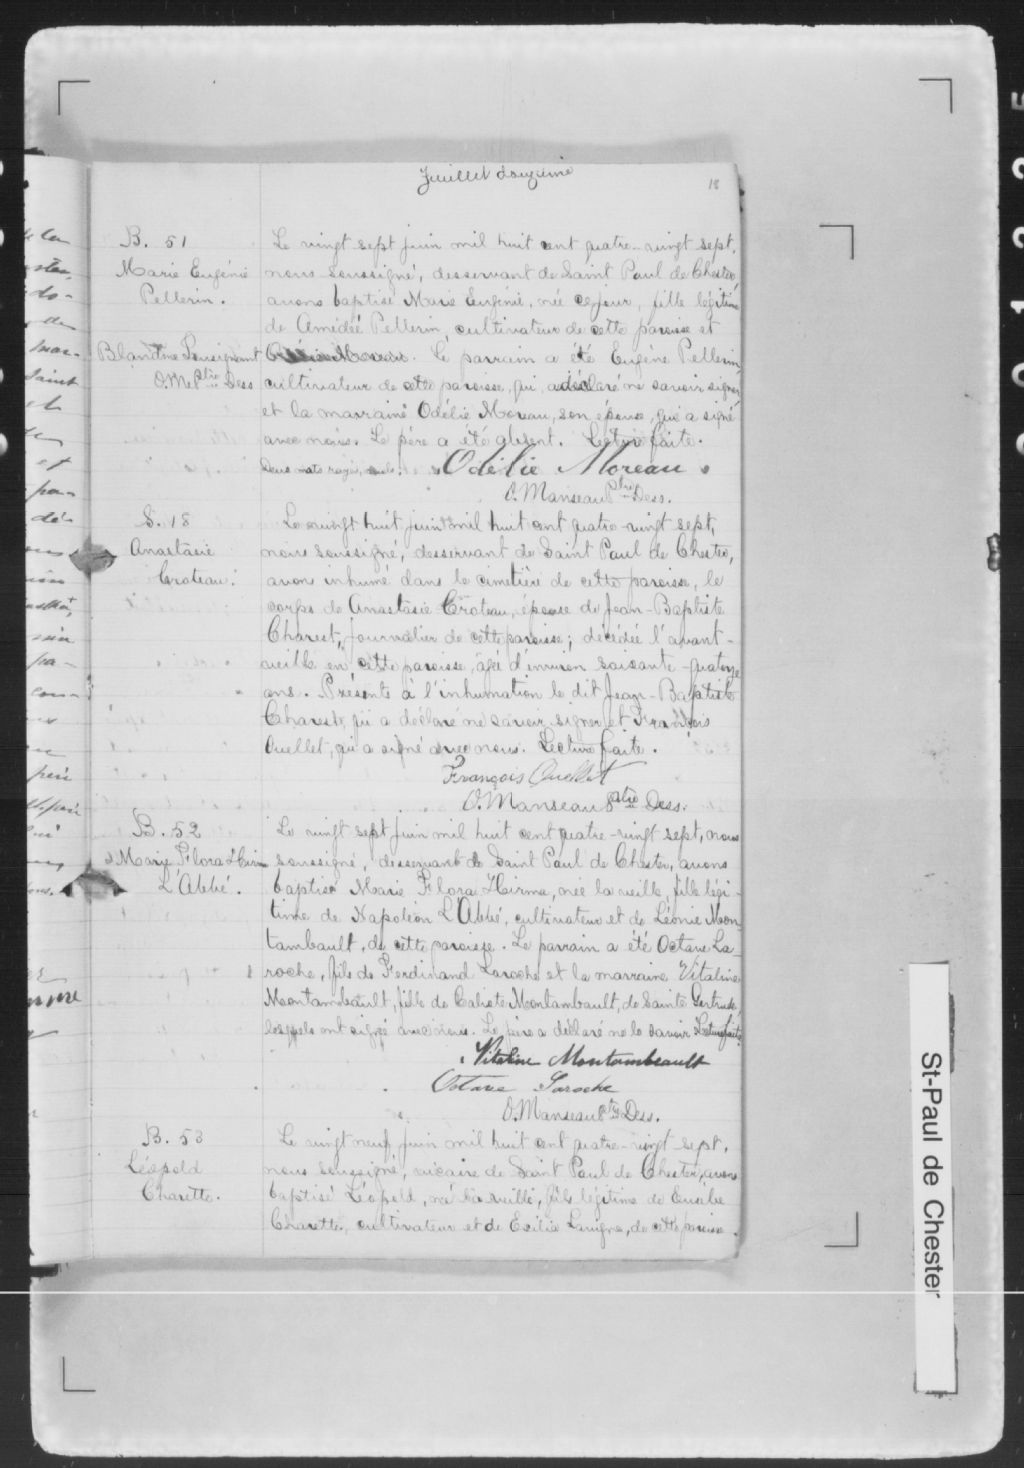 Feuillet douzième
12
B. 51
Marie Eugénie
Pellerin.
Blandine Lousignant
O.M. Ptre Dess
Le vingt sept juin mil huit cent quatre-vingt sept,
nous soussigné, desservant de Saint Paul de Chester,
avons baptisé Marie Eugénie, née ce jour, fille légitime
de Amédée Pellerin, cultivateur de cette paroisse et
Le parrain a été Eugène Pellerin
cultivateur de cette paroisse, qui a déclaré ne savoir signer
et la marraine Odélie Moreau, son épouse, qui a signé
avec nous. Le père a été absent. Lecture faite.
Deux mots rayés, nuls. Odélie Moreau
O. Manseau Ptre Dess.
S. 18
Anastasie
Croteau.
Le vingt huit juin mil huit cent quatre-vingt sept,
nous soussigné, desservant de Saint Paul de Chester,
avons inhumé dans le cimetière de cette paroisse, le
corps de Anastasie Croteau, épouse de Jean-Baptiste
Charest, journalier de cette paroisse; décédée l'avant-
veille en cette paroisse, âgée d'environ soixante-quatorze
ans. Présents à l'inhumation le dit Jean-Baptiste
Charest, qui a déclaré ne savoir signer et François
Ouellet, qui a signé avec nous. Lecture faite.
François Ouellet
O. Manseau Ptre Dess.
B. 52
Marie Flora
L'Abbé.
Le vingt sept juin mil huit cent quatre-vingt sept, nous
soussigné, desservant de Saint Paul de Chester, avons
baptisé Marie Flora Hirma, née la veille, fille légi-
time de Napoléon L'Abbé, cultivateur et de Léonie Mon-
tambault, de cette paroisse. Le parrain a été Octave La-
roche, fils de Ferdinand Laroche et la marraine Vitaline
Montambeault, fille de Calixte Montambault, de Sainte Gertrude,
lesquels ont signé avec nous. Le père a déclaré ne le savoir. Lecture faite.
Vitaline Montambeault
Octave Laroche
O. Manseau Ptre Dess.
B. 53
Léopold
Charette.
Le vingt neuf juin mil huit cent quatre-vingt sept,
nous soussigné, vicaire de Saint Paul de Chester, avons
baptisé Léopold, né la veille, fils légitime de Eusèbe
Charette, cultivateur et de Exilia Lavigne, de cette paroisse.
St-Paul de Chester